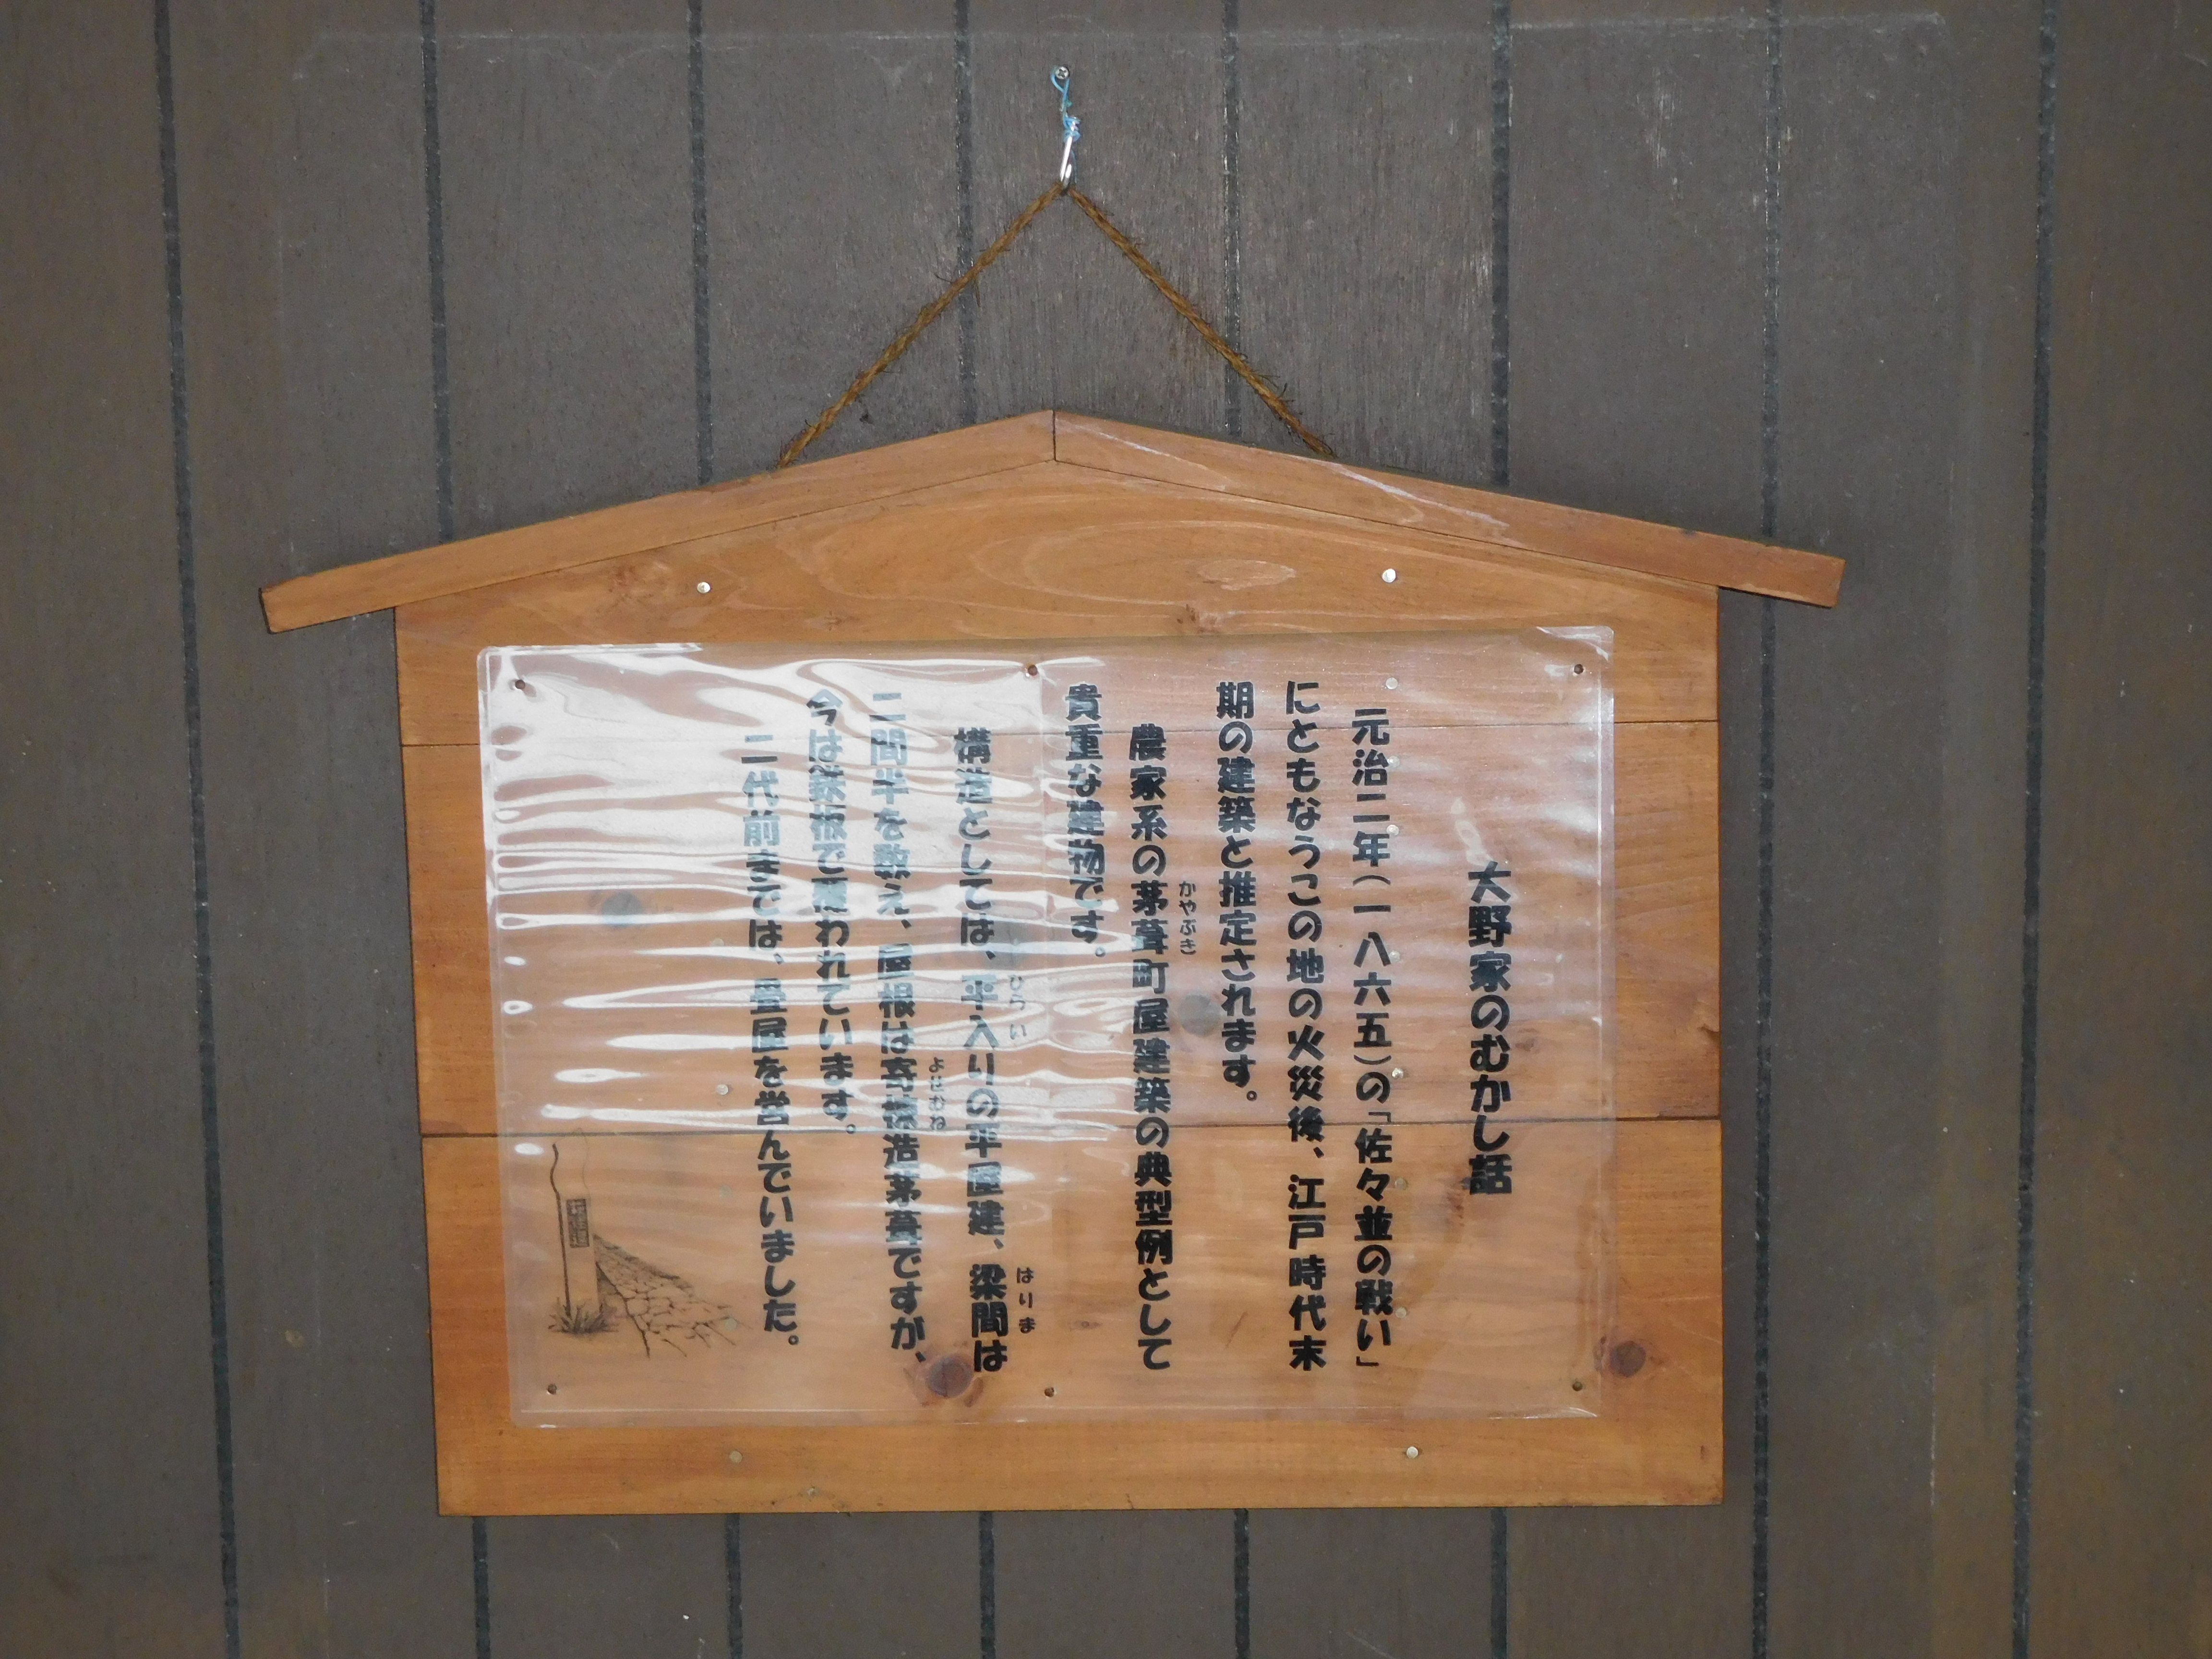 大野家のむかし話
元治二年(一八六五)の「佐々並の戦い」
にともなうこの地の火災後、江戸時代末
期の建築と推定されます。
農家系の茅葺町屋建築の典型例として
かやぶき
貴重な建物です。
構造としては、平入りの平屋建、梁間は
ひらい
はりま
二間半を数え、屋根は寄棟造茅葺ですが、
よせむね
今は鉄板で覆われています。
二代前までは、畳屋を営んでいました。